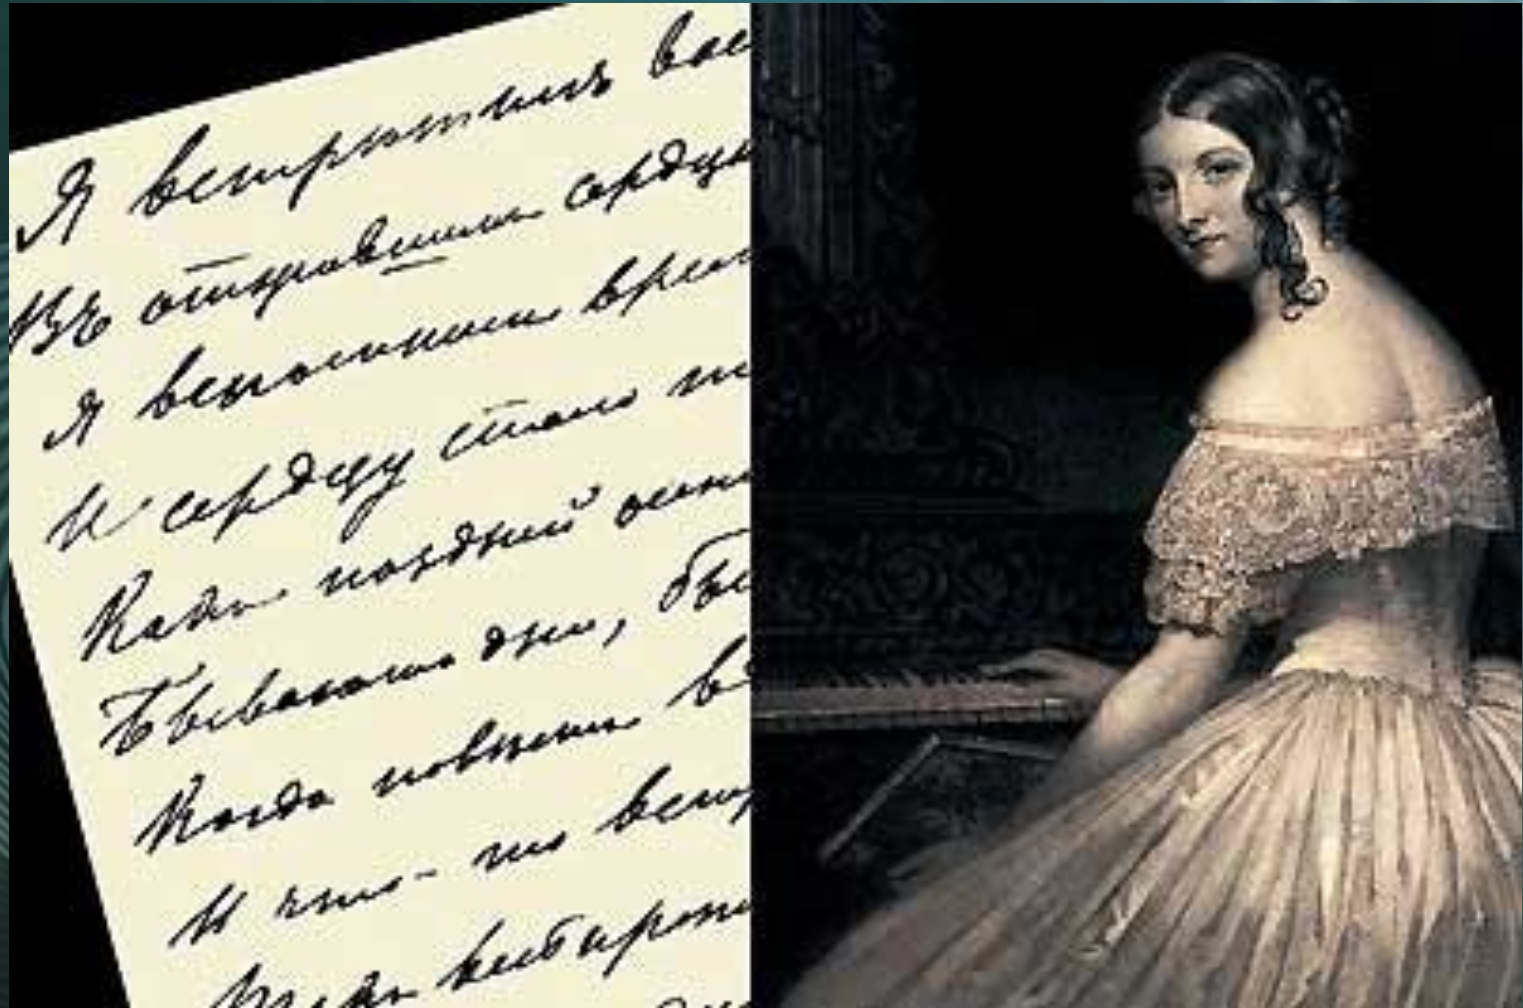 Я встрѣтилъ вас
Въ отжившемъ сердцѣ
Я вспомнилъ врем
И сердцу стало т
Какъ поздней осен
Бываютъ дни, быв
Когда повѣетъ в
И что-то встр